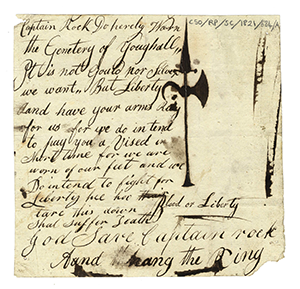 CSO/RP/SC/1821/
Captain Rock Do hereby Warn
the Gemtery of Youghall
It is not Gould nor Silver
we want But Liberty
and have your arms
for us for we do intend
to pay you a Vised in
Short time for we are
worn of our feet and we
Do intend to fight for
Liberty Blood or Liberty
tare this down
Shal Suffer Death
God Save Captain rock
Aand hang the King